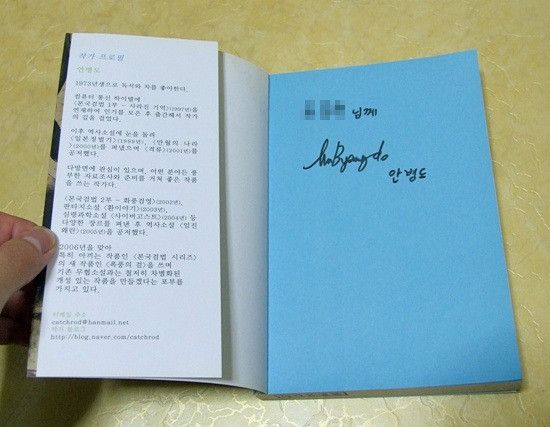 작가 프로필
안병도
1973년생으로 독서와 차를 좋아한다.
컴퓨터 통신 하이텔에
<본국검법 1부 - 사라진 기억>(1997년)을
연재하여 인기를 모은 후 출간해서 작가
의 길을 걸었다.
이후 역사소설에 눈을 돌려
<일본정벌기>(1999년), <만월의 나라
>(2000년)를 펴냈으며 <격류>(2001년)를
공저했다.
다방면에 관심이 있으며, 어떤 분야든 풍
부한 자료조사와 준비를 거쳐 좋은 작품
을 쓰는 작가다.
<본국검법 2부 - 화풍검영>(2002년),
판타지소설 <환이야기>(2003년),
심령과학소설 <사이버고스트>(2004년) 등
다양한 장르를 펴낸 후 역사소설 <임진
왜란>(2005년)을 공저했다.
2006년을 맞아
특히 아끼는 작품인 <본국검법 시리즈>
의 새 작품인 <폭풍의 검>을 쓰며
기존 무협소설과는 철저히 차별화된
개성 있는 작품을 만들겠다는 포부를
가지고 있다.
이메일 주소
catchrod@hanmail.net
작가 블로그
http://blog.naver.com/catchrod
님께
안병도